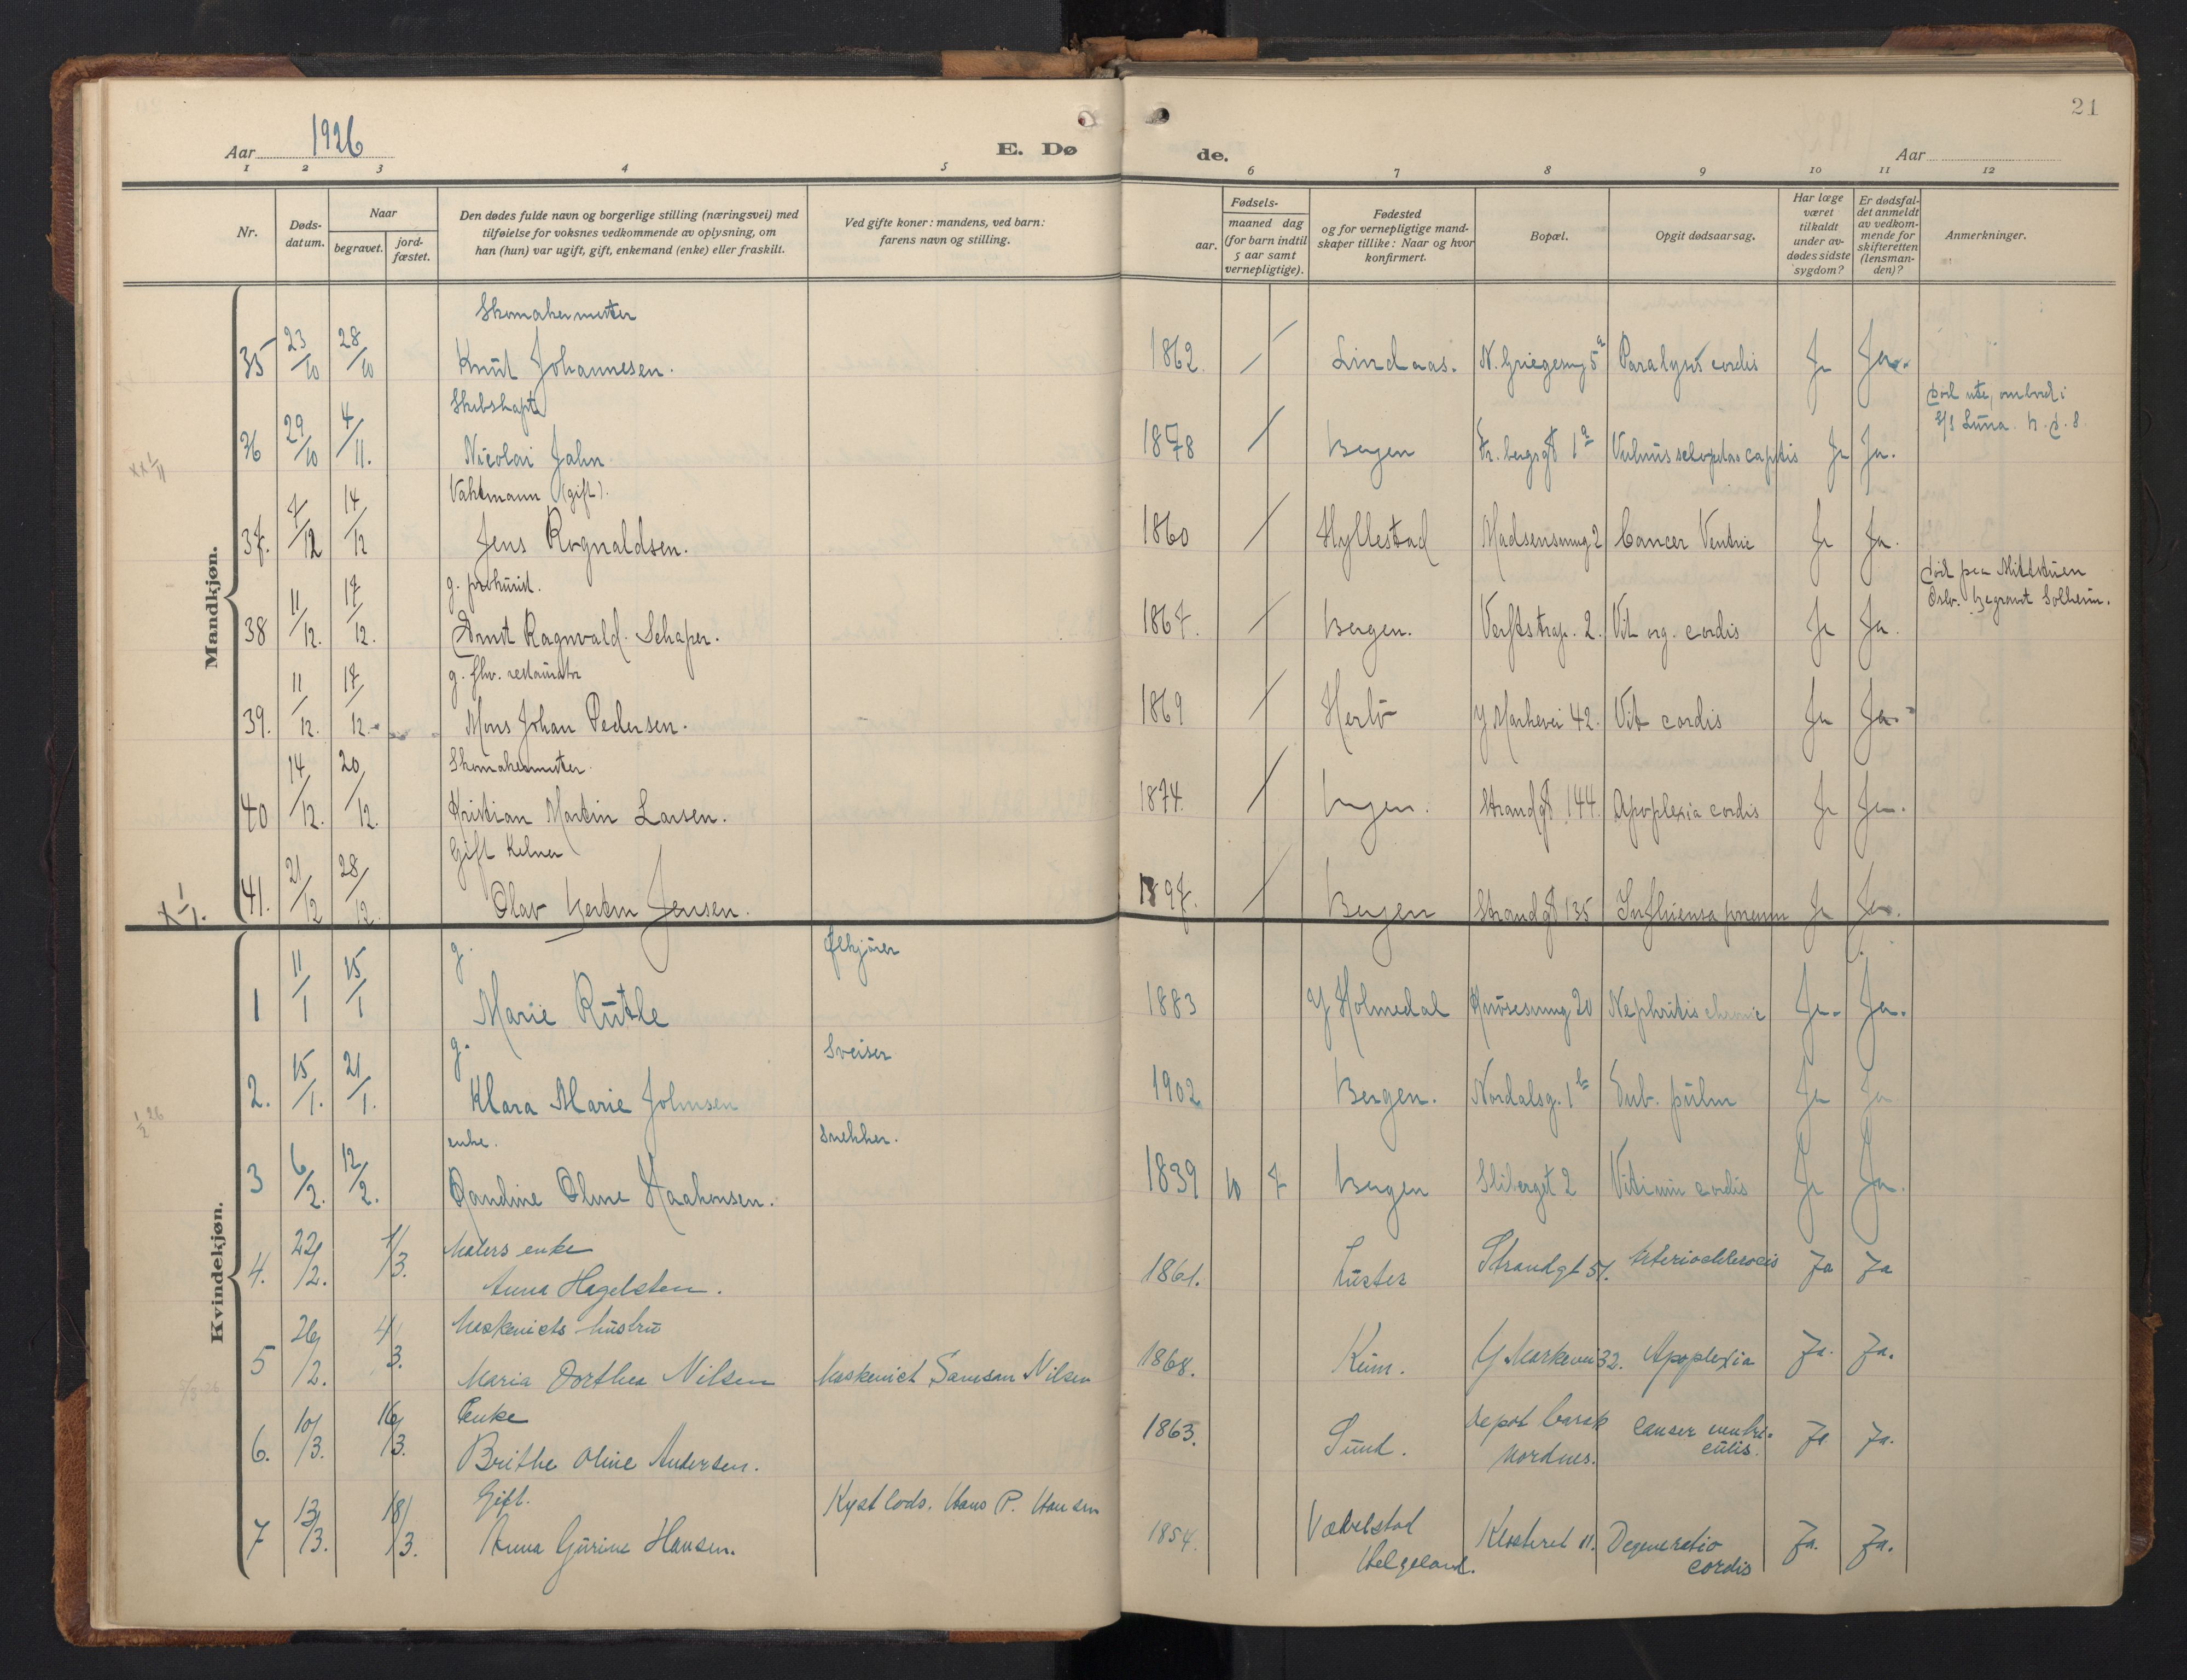 21
Aar 1926
E. Dø
de.
Aar
1 2 3 4 5 6 7 8 9 10 11 12
Nr.
Døds-
datum.
Naar
begravet.
jord-
fæstet.
Den dødes fulde navn og borgerlige stilling (næringsvei) med
tilføielse for voksnes vedkommende av oplysning, om
han (hun) var ugift, gift, enkemand (enke) eller fraskilt.
Ved gifte koner: mandens, ved barn:
farens navn og stilling.
Fødsels-
aar.
maaned dag
(for barn indtil
5 aar samt
vernepligtige).
Fødested
og for vernepligtige mand-
skaper tillike: Naar og hvor
konfirmert.
Bopæl.
Opgit dødsaarsag.
Har læge
været
tilkaldt
under av-
dødes sidste
sygdom?
Er dødsfal-
det anmeldt
av vedkom-
mende for
skifteretten
(lensman-
den)?
Anmerkninger.
Mandkjøn.
Skomakermester
35 23/10 28/10 Knut Johannesen. 1862. / / Lindaas. N. Griegesmug 5a Paralysis cordis Ja Ja.
Skibskapt
36 29/10 4/11. Nicolai Jahn 1878 / Bergen 1a Vulnus Ja Ja.
død ute, ombord i
S/S Luna.
Vaktmann (gift).
37. 7/12 14/12 Jens Rognaldsen. 1860 / Hyllestad Madsensmug 2 Cancer Ventric Ja Ja.
g. prokurist.
38 11/12. 17/12. Ernst Ragnvald Schaper. 1867. / Bergen. 2. Vit org. cordis Ja Ja.
død paa
Oslo. begravet Solheim.
g. fhv. restauratør
39. 11/12. 17/12. Mons Johan Pedersen. 1869 / Herlø Y Markevei 42. Vit cordis Ja Ja.
Skomakermester
40 14/12. 20/12. Kristian Martin Larsen. 1874. / Bergen. Strandgt 144 Apoplexia cordis Ja Ja.
Gift Kelner
41. 21/12 28/12. Olav Jensen. 1897. / Bergen Strandgt 135 Influensa pneum Ja Ja.
Kvindekjøn.
g. Ølkjører
1 11/1 15/1 Marie Rutle 1883 Y Holmedal Knøsesmug 20 Nephritis chronic Ja. Ja.
g. Sveiser
2. 15/1. 21/1. Klara Marie Johnsen 1902 Bergen. Nordalsg. 1b Tub. pulm Ja Ja
enke. Snekker.
3 6/2. 12/2. Randine Oline Haakonsen. 1839 10 7 Bergen Sliberget 2 Vitium cordis Ja Ja.
Malers enke
4. 22/2. 1/3. Anna Hagelsten. 1861. Luster Strandgt 51. Arteriosklerosis Ja Ja
Maskenists hustru
5 26/2. 4/3. Maria Dorthea Nilsen Maskenist Samson Nilsen 1868. Y Markevei 32. Apoplexia Ja. Ja.
Enke
6. 10/3. 16/3. Brithe Oline Andersen. 1863. Sund. Depot barak
Nordnes. Canser ventri-
culis. Ja Ja.
Gift. Kystlods. Hans P. Hansen
7 13/3. 18/3. Anna Gurine Hansen. 1854. Vævelstad
Helgeland. Klosteret 11. Degeneratio
cordis Ja. Ja.